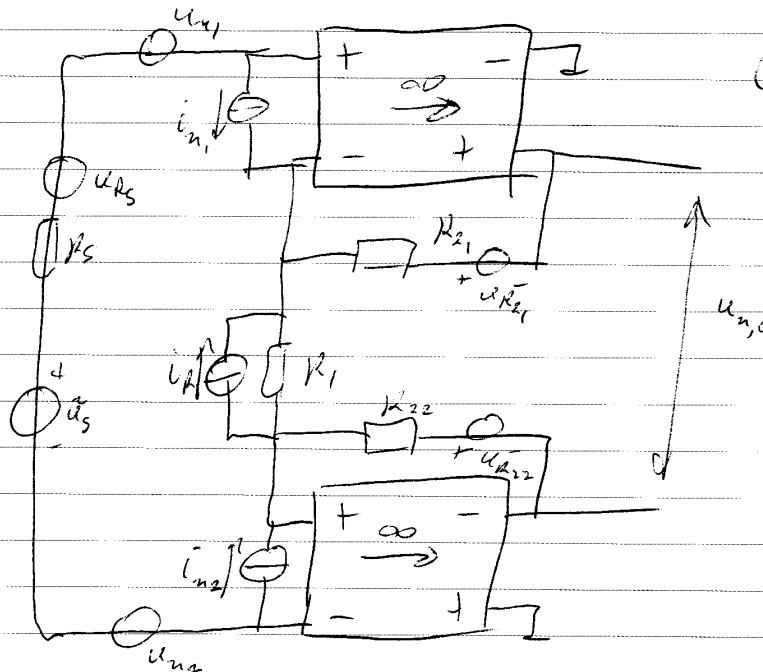 u_n1
+ -
∞
i_n1
- +
u_RS
R_S
R_21
+ -
u_R21
u_n,
i_R
R_1
+
ũ_S
-
R_22
+ -
u_R22
+ -
∞
i_n2
- +
u_n2